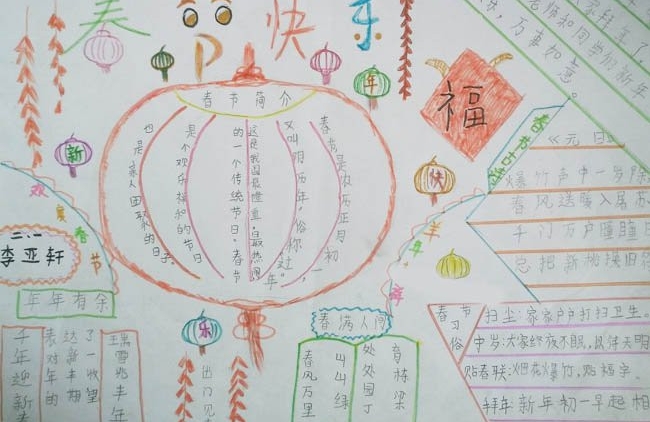 春节快乐
家拜年了,
老师和同学们新年
快,万事如意。
新
年
快
乐
福
春节简介
春节是农历正月初一,
又叫阴历年,俗称“过年”。
这是我国最隆重、最热闹
的一个传统节日。春节
是个欢乐祥和的节日
也是家人团聚的日子
欢度春节
二.二
李亚轩
年年有余
瑞雪兆丰年
千年迎新春
春满人间
育栋梁
处处园丁
山山绿
春风万里
出门见
羊年
春节古诗
《元日》
爆竹声中一岁除
春风送暖入屠苏
千门万户曈曈日
总把新桃换旧符
春节习俗
扫尘:家家户户打扫卫生。
守岁:大家终夜不眠,以待天明
贴春联:烟花爆竹,贴福字。
拜年 新年初一早起相